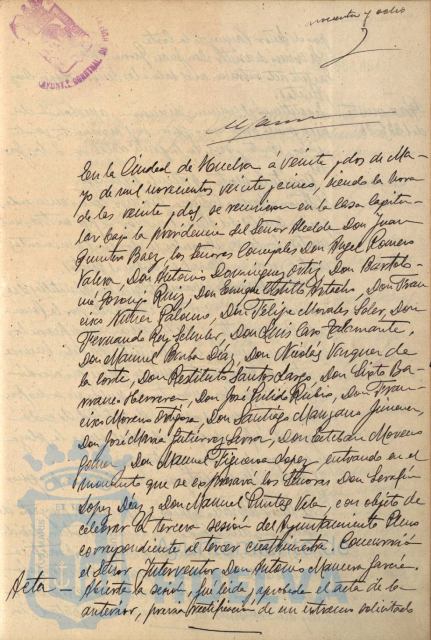 noventa y ocho
En la Ciudad de Huelva á veinte y dos de Ma-
yo de mil novecientos veinte y cinco, siendo la hora
de las veinte y dos, se reunieron en la Casa Capitu-
lar bajo la presidencia del Señor Alcalde Don Juan
Quintero Baez, los Señores Concejales Don Angel Romero
Don Antonio Dominguez Ortiz, Don Bartolo-
mé Naranjo Ruiz, Don Enrique Don Fran-
cisco Palomo, Don Felipe Morales Soler, Don
Fernando Rey Don Luis Caro
Don Manuel Diaz, Don Nicolás Vazquez de
la Corte, Don Restituto Santos Largo, Don Sixto Ba-
rranco Herrera, Don José Pulido Rubio, Don Fran-
cisco Moreno Ortega, Don Santiago Manzano Jimenez,
Don José Maria Gutierrez Don Esteban Moreno
Don Manuel Figueroa Lopez, entrando en el
momento que se expresará los Señores Don Serafin
Lopez Diaz, y Don Manuel Puntas Vela, con objeto de
celebrar la tercera sesión del Ayuntamiento Pleno
correspondiente al tercer cuatrimestre. Concurrió
el Señor Interventor Don Antonio Garcia.
Acta — Abierta la sesión, fué leida, aprobada el acta de la
anterior, previa rectificación de un extremo solicitada